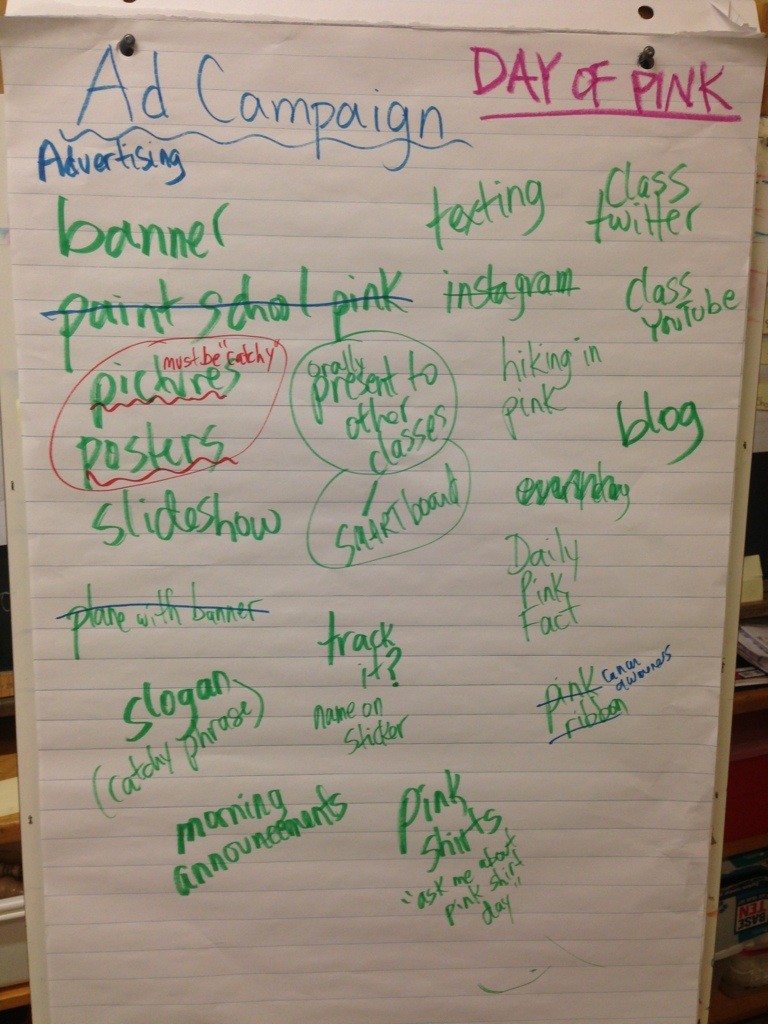 Ad Campaign
DAY OF PINK
Advertising
banner
texting
class
twitter
paint school pink
instagram
class
YouTube
must be "catchy"
pictures
posters
orally
present to
other
classes
hiking in
pink
blog
SMARTboard
slideshow
everyday
Daily
Pink
Fact
plane with banner
track
it?
name on
sticker
pink
ribbon
slogan
(catchy phrase)
morning
announcements
pink
shirts
"ask me about
pink shirt
day"
BASE
TEN